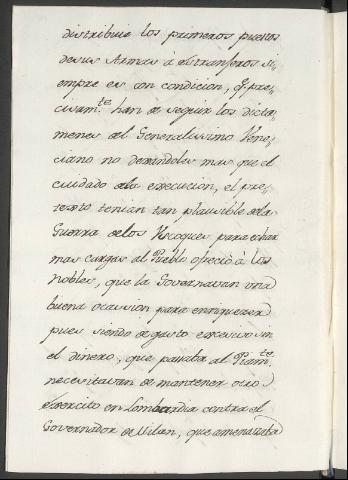 distribuie los primeros puestos
de sus Armas à estranjeros si-
empre es con condicion, q.e pre-
cisam.te han de seguir los dicta-
menes del Generalissimo Vene-
ciano no dexandoles mas que el
cuidado dela execucion, el pre-
texto tenian tan plausible dela
Guerra de los Vscoques para echar
mas cargas al Pueblo ofreciò à los
nobles, que la Governavan una
buena ocassion para enrriquezer
pues siendo de gasto excesivo sin
el dinero, que pasaba al Piam.te
necesitavan de mantener otro
exercito en Lombardia contra el
Governador de Milan, que amenazaba